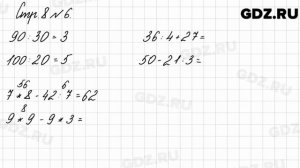 GDZ.RU
Стр. 8 № 6.
90 : 30 = 3
100 : 20 = 5
56 6
7 * 8 - 42 : 7 = 62
8
9 * 9 - 9 * 3 =
36 : 4 + 27 =
50 - 21 : 3 =